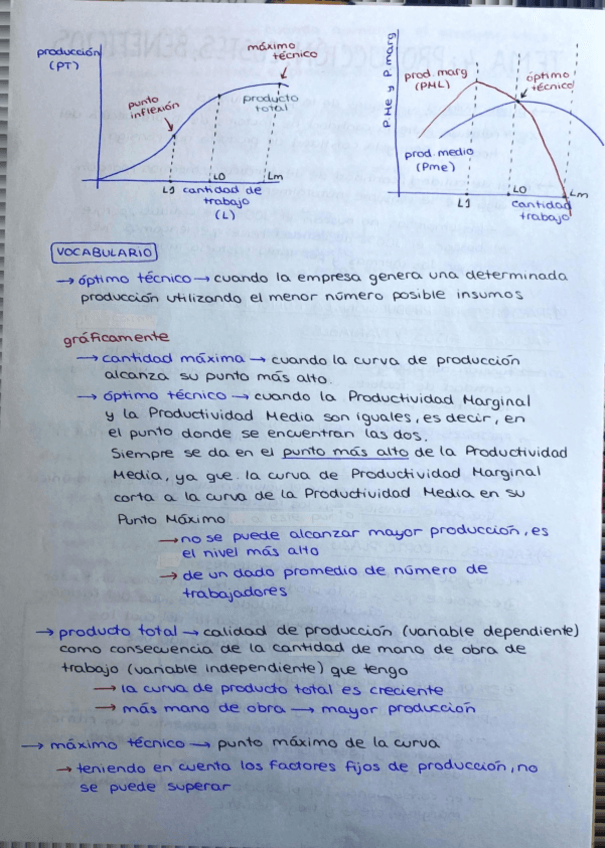 producción
(PT)
máximo
técnico
punto
inflexión
producto
total
L1
LO
Lm
cantidad de
trabajo
(L)
PMe y Pmarg
prod. marg
(PML)
óptimo
técnico
prod. medio
(Pme)
L1
LO
Lm
cantidad
trabajo
VOCABULARIO
→ óptimo técnico → cuando la empresa genera una determinada
producción utilizando el menor número posible insumos
gráficamente
→ cantidad máxima → cuando la curva de producción
alcanza su punto más alto.
→ óptimo técnico → cuando la Productividad Marginal
y la Productividad Media son iguales, es decir, en
el punto donde se encuentran las dos.
Siempre se da en el punto más alto de la Productividad
Media, ya que la curva de Productividad Marginal
corta a la curva de la Productividad Media en su
Punto Máximo
→ no se puede alcanzar mayor producción, es
el nivel más alto
→ de un dado promedio de número de
trabajadores
→ producto total → calidad de producción (variable dependiente)
como consecuencia de la cantidad de mano de obra de
trabajo (variable independiente) que tengo
→ la curva de producto total es creciente
→ más mano de obra → mayor producción
→ máximo técnico → punto máximo de la curva
→ teniendo en cuenta los factores fijos de producción, no
se puede superar